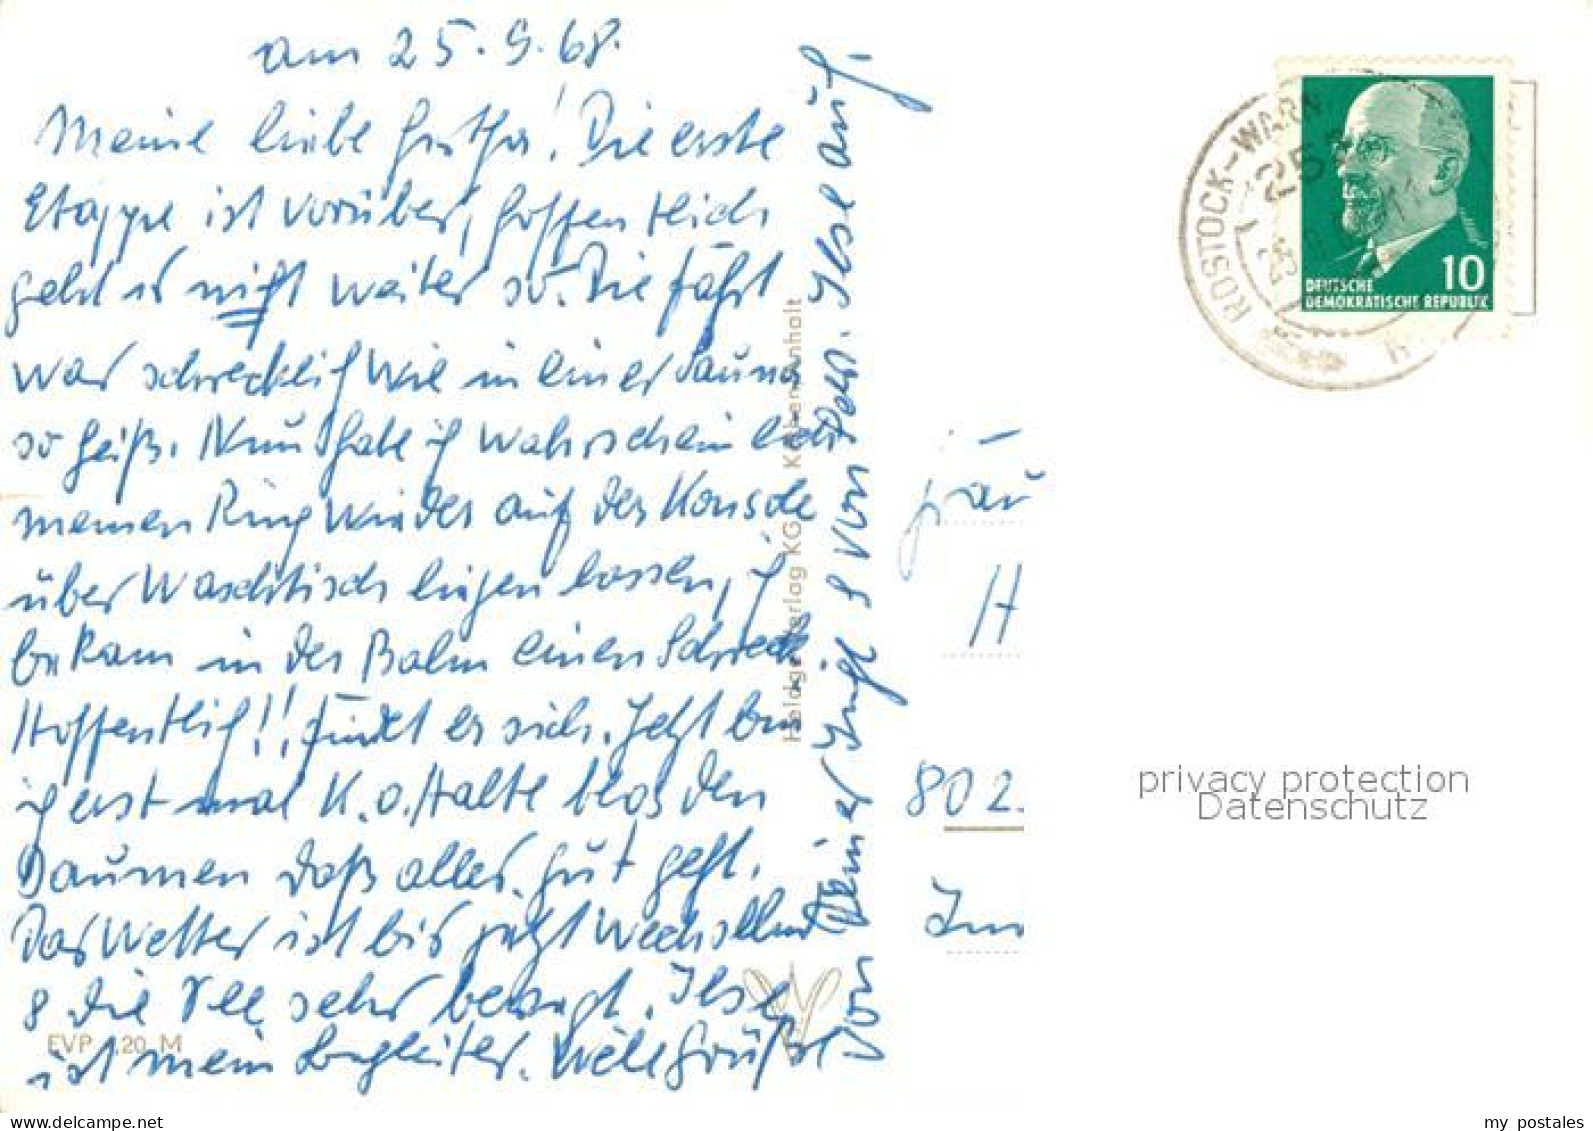 am 25. 9. 68.
Meine liebe Hertha! Die erste
Etappe ist vorüber, hoffentlich
geht es nicht weiter so. Die fährt
war schrecklich wie in einer Sauna
so heiß. Nun habe ich wahrscheinlich
meinen Ring wieder auf der Konsole
über Waschtisch liegen lassen, ich
bekam in der Bahn einen Schreck
Hoffentlich!! findet er sich. Jetzt bin
ich erst mal K.o. Halte blos den
Daumen daß alles gut geht.
Das Wetter ist bis jetzt wechselnd
& die See sehr bewegt. Ilse
ist mein Begleiter. Viele Grüße
von Deiner & von Dora. Ilse auch.
Heidger-Verlag KG
EVP 1,20 M
ROSTOCK-WARN
25
DEUTSCHE
DEMOKRATISCHE REPUBLIK
10
H
802
privacy protection
Datenschutz
my postales